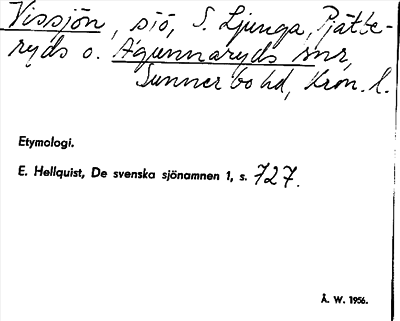 Vissjön, sjö, S. Ljunga, Pjätte-
ryds o. Agunnaryds snr,
Sunnerbo hd, Kron. l.
Etymologi.
E. Hellquist, De svenska sjönamnen 1, s. 727.
Å. W. 1956.